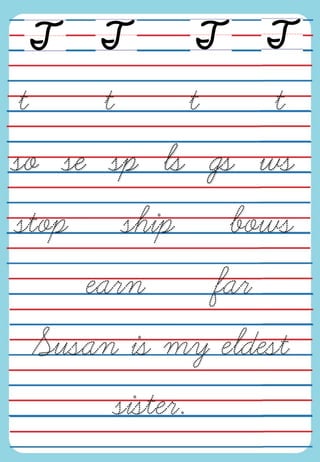 T T T T
t t t t
so se sp ls gs ws
stop ship bows
earn far
Susan is my eldest
sister.